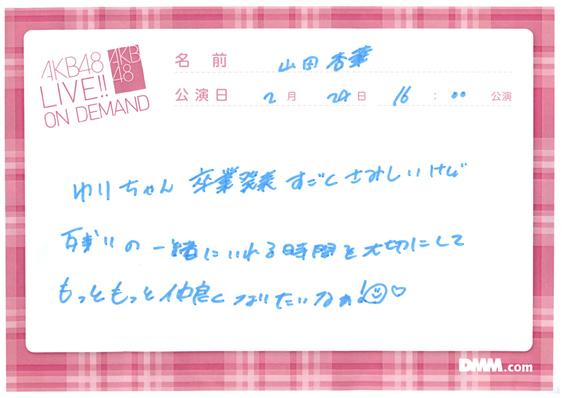 AKB48
LIVE!!
ON DEMAND
AKB
48
名前 山田杏華
公演日 2月 24日 16:00 公演
ゆりちゃん 卒業発表 すごくさみしいけど
残りの一緒にいれる時間を大切にして
もっともっと仲良くなりたいなぁ!
DMM.com